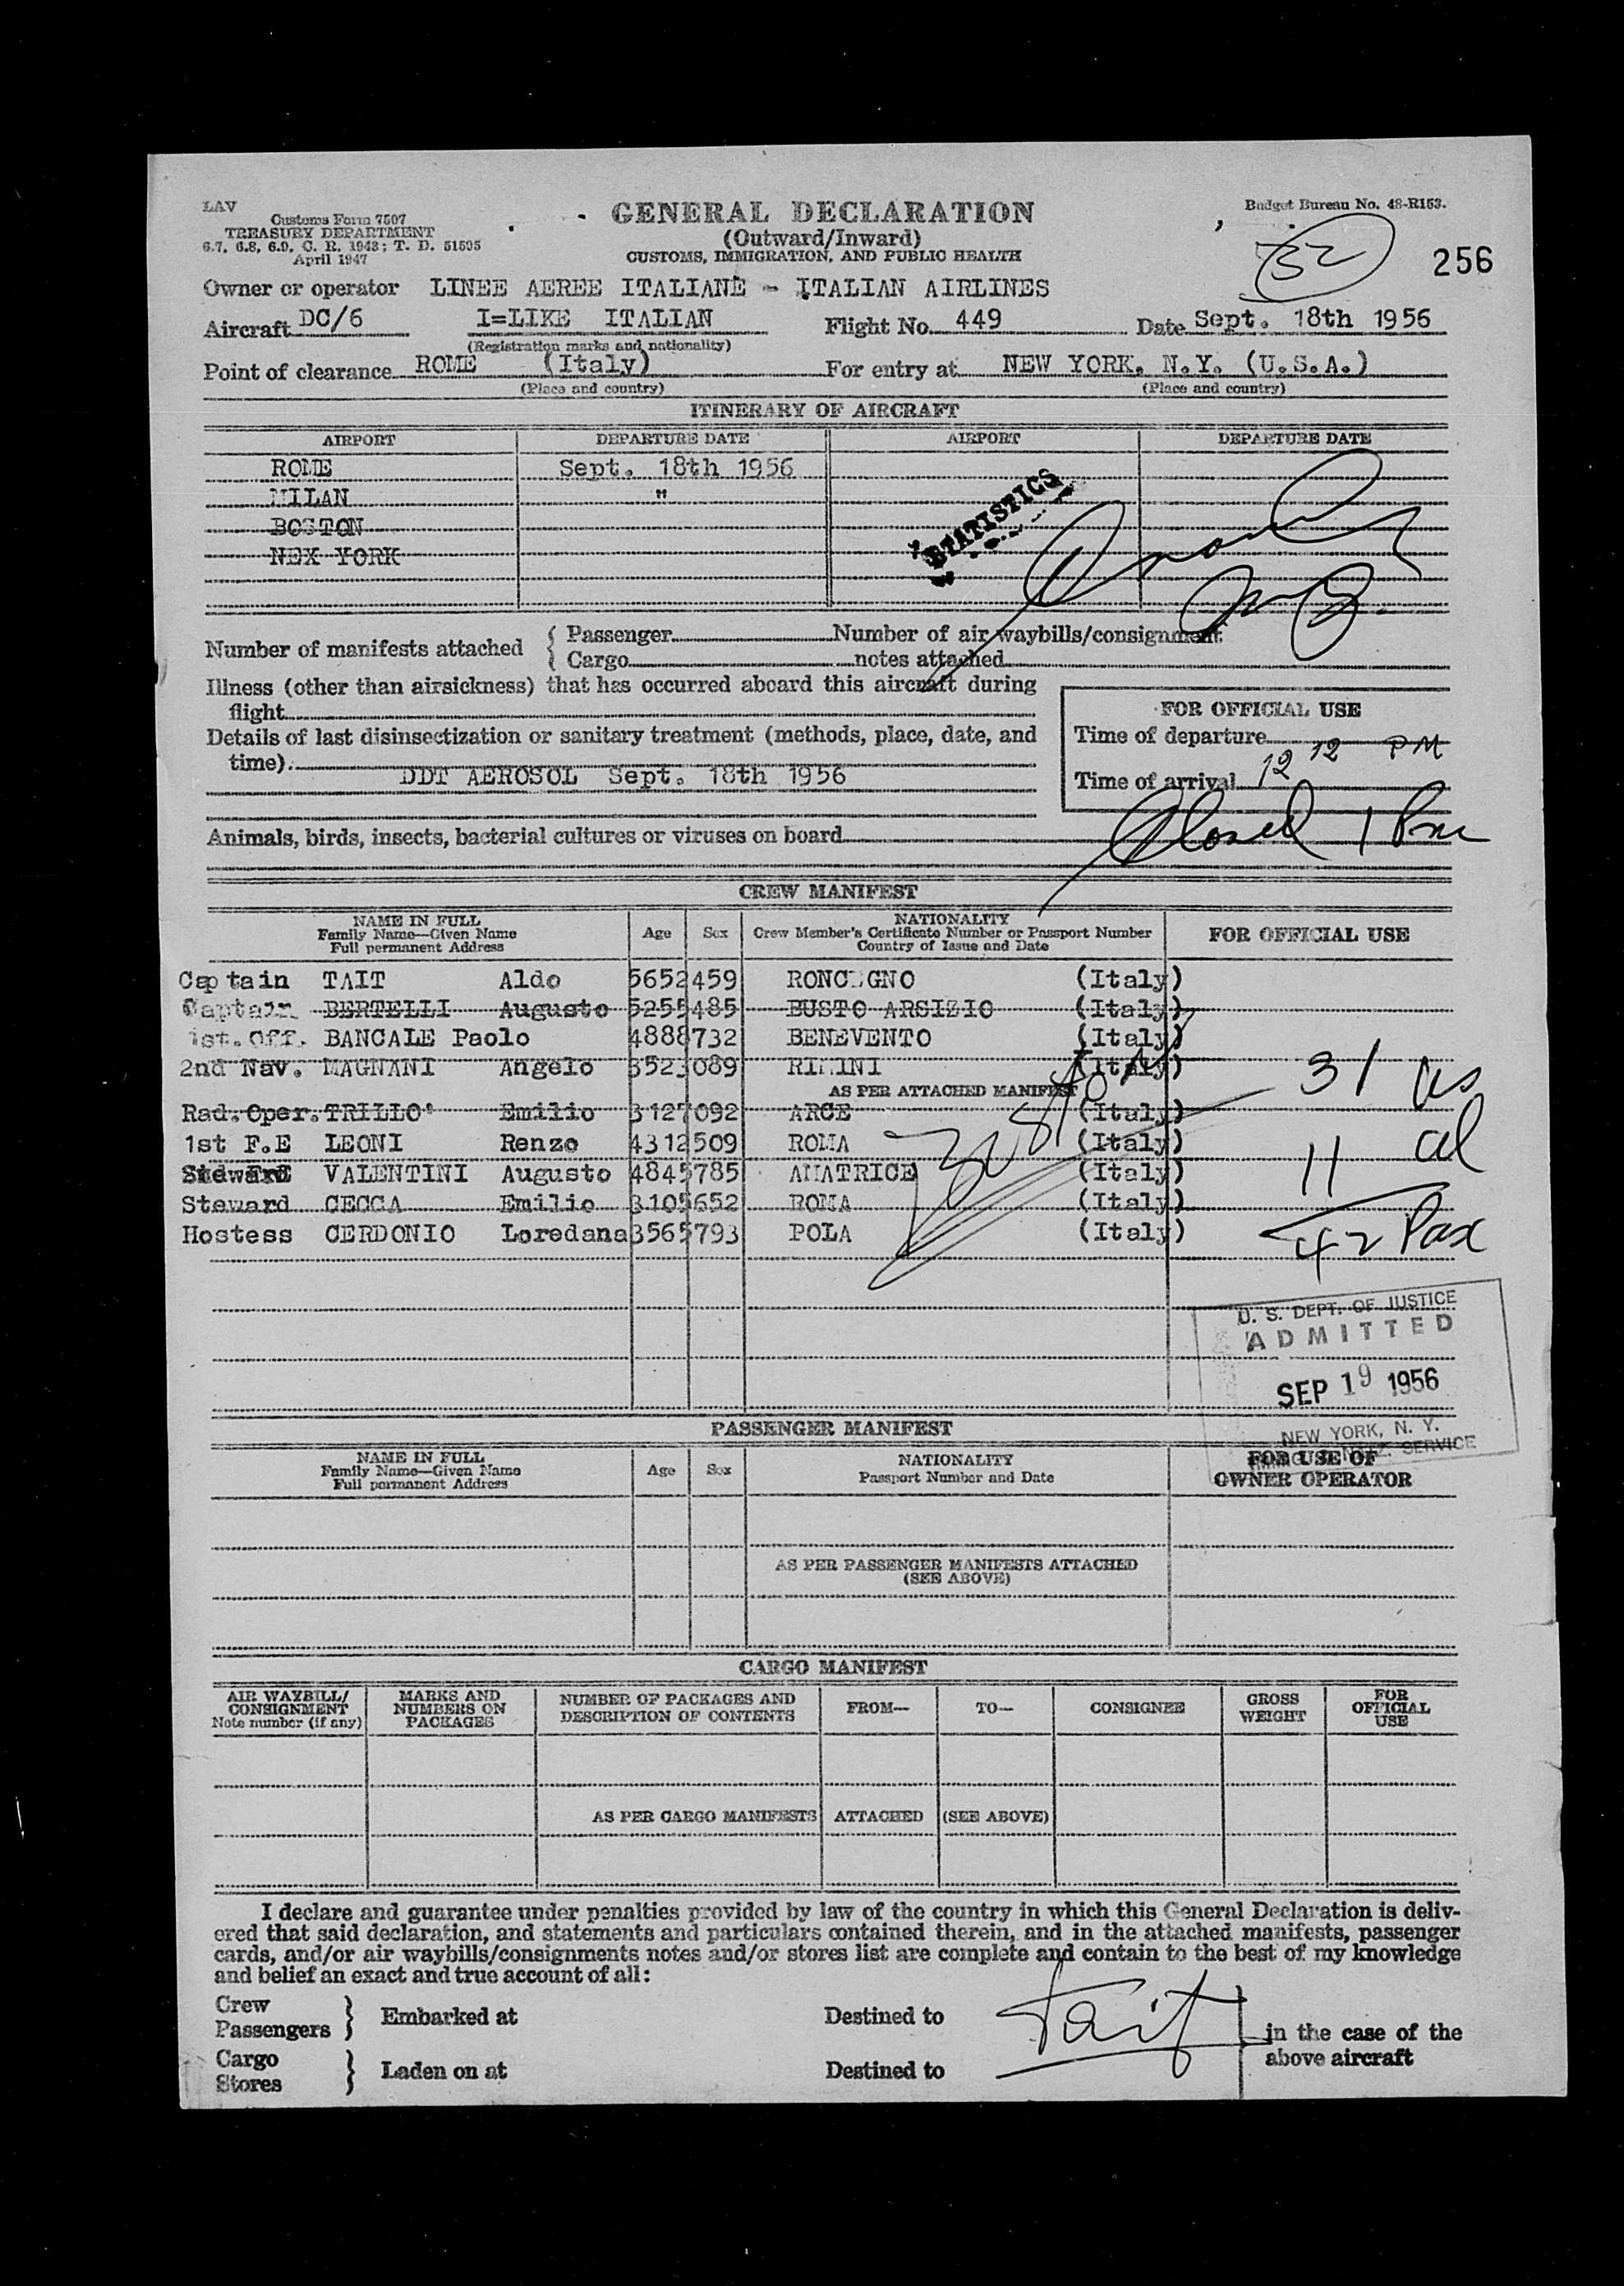 LAV
Customs Form 7507
TREASURY DEPARTMENT
6.7, 6.8, 6.9, C. R. 1943; T. D. 51595
April 1947
GENERAL DECLARATION
(Outward/Inward)
CUSTOMS, IMMIGRATION, AND PUBLIC HEALTH
Budget Bureau No. 48-R153.
32
256
Owner or operator LINEE AEREE ITALIANE - ITALIAN AIRLINES
Aircraft DC/6 I=LIKE ITALIAN Flight No. 449 Date Sept. 18th 1956
(Registration marks and nationality)
Point of clearance ROME (Italy) For entry at NEW YORK. N.Y. (U.S.A.)
(Place and country) (Place and country)
ITINERARY OF AIRCRAFT
AIRPORT DEPARTURE DATE AIRPORT DEPARTURE DATE
ROME Sept. 18th 1956
MILAN "
BOSTON
NEX YORK
STATISTICS
Number of manifests attached { Passenger Number of air waybills/consignment
Cargo notes attached
Illness (other than airsickness) that has occurred aboard this aircraft during
flight
Details of last disinsectization or sanitary treatment (methods, place, date, and
time). DDT AEROSOL Sept. 18th 1956
FOR OFFICIAL USE
Time of departure
Time of arrival 12 12 PM
Closed 1 Pm
Animals, birds, insects, bacterial cultures or viruses on board
CREW MANIFEST
NAME IN FULL
Family Name—Given Name
Full permanent Address
Age Sex
NATIONALITY
Crew Member's Certificate Number or Passport Number
Country of Issue and Date
FOR OFFICIAL USE
Captain TAIT Aldo 5652459 (Italy)
Captain BERTELLI Augusto 5255485 BUSTO ARSIZIO (Italy)
1st. Off. BANCALE Paolo 4888732 BENEVENTO (Italy)
2nd Nav. MAGNANI Angelo RIMINI (Italy)
AS PER ATTACHED MANIFEST
Rad. Oper. TRILLO' Emilio 3127092 ARCE (Italy)
1st F.E LEONI Renzo 4312509 ROMA (Italy)
Steward VALENTINI Augusto 4845785 AMATRICE (Italy)
Steward CECCA Emilio 3105652 ROMA (Italy)
Hostess CERDONIO Loredana 3565793 POLA (Italy)
31 us
11 al
42 Pax
U. S. DEPT. OF JUSTICE
ADMITTED
SEP 19 1956
NEW YORK, N. Y.
SERVICE
PASSENGER MANIFEST
NAME IN FULL
Family Name—Given Name
Full permanent Address
Age Sex
NATIONALITY
Passport Number and Date
FOR USE OF
OWNER OPERATOR
AS PER PASSENGER MANIFESTS ATTACHED
(SEE ABOVE)
CARGO MANIFEST
AIR WAYBILL/
CONSIGNMENT
Note number (if any)
MARKS AND
NUMBERS ON
PACKAGES
NUMBER OF PACKAGES AND
DESCRIPTION OF CONTENTS
FROM—
TO—
CONSIGNEE
GROSS
WEIGHT
FOR
OFFICIAL
USE
AS PER CARGO MANIFESTS ATTACHED (SEE ABOVE)
I declare and guarantee under penalties provided by law of the country in which this General Declaration is deliv-
ered that said declaration, and statements and particulars contained therein, and in the attached manifests, passenger
cards, and/or air waybills/consignments notes and/or stores list are complete and contain to the best of my knowledge
and belief an exact and true account of all:
Crew
Passengers } Embarked at Destined to
Cargo
Stores } Laden on at Destined to
Tait
in the case of the
above aircraft